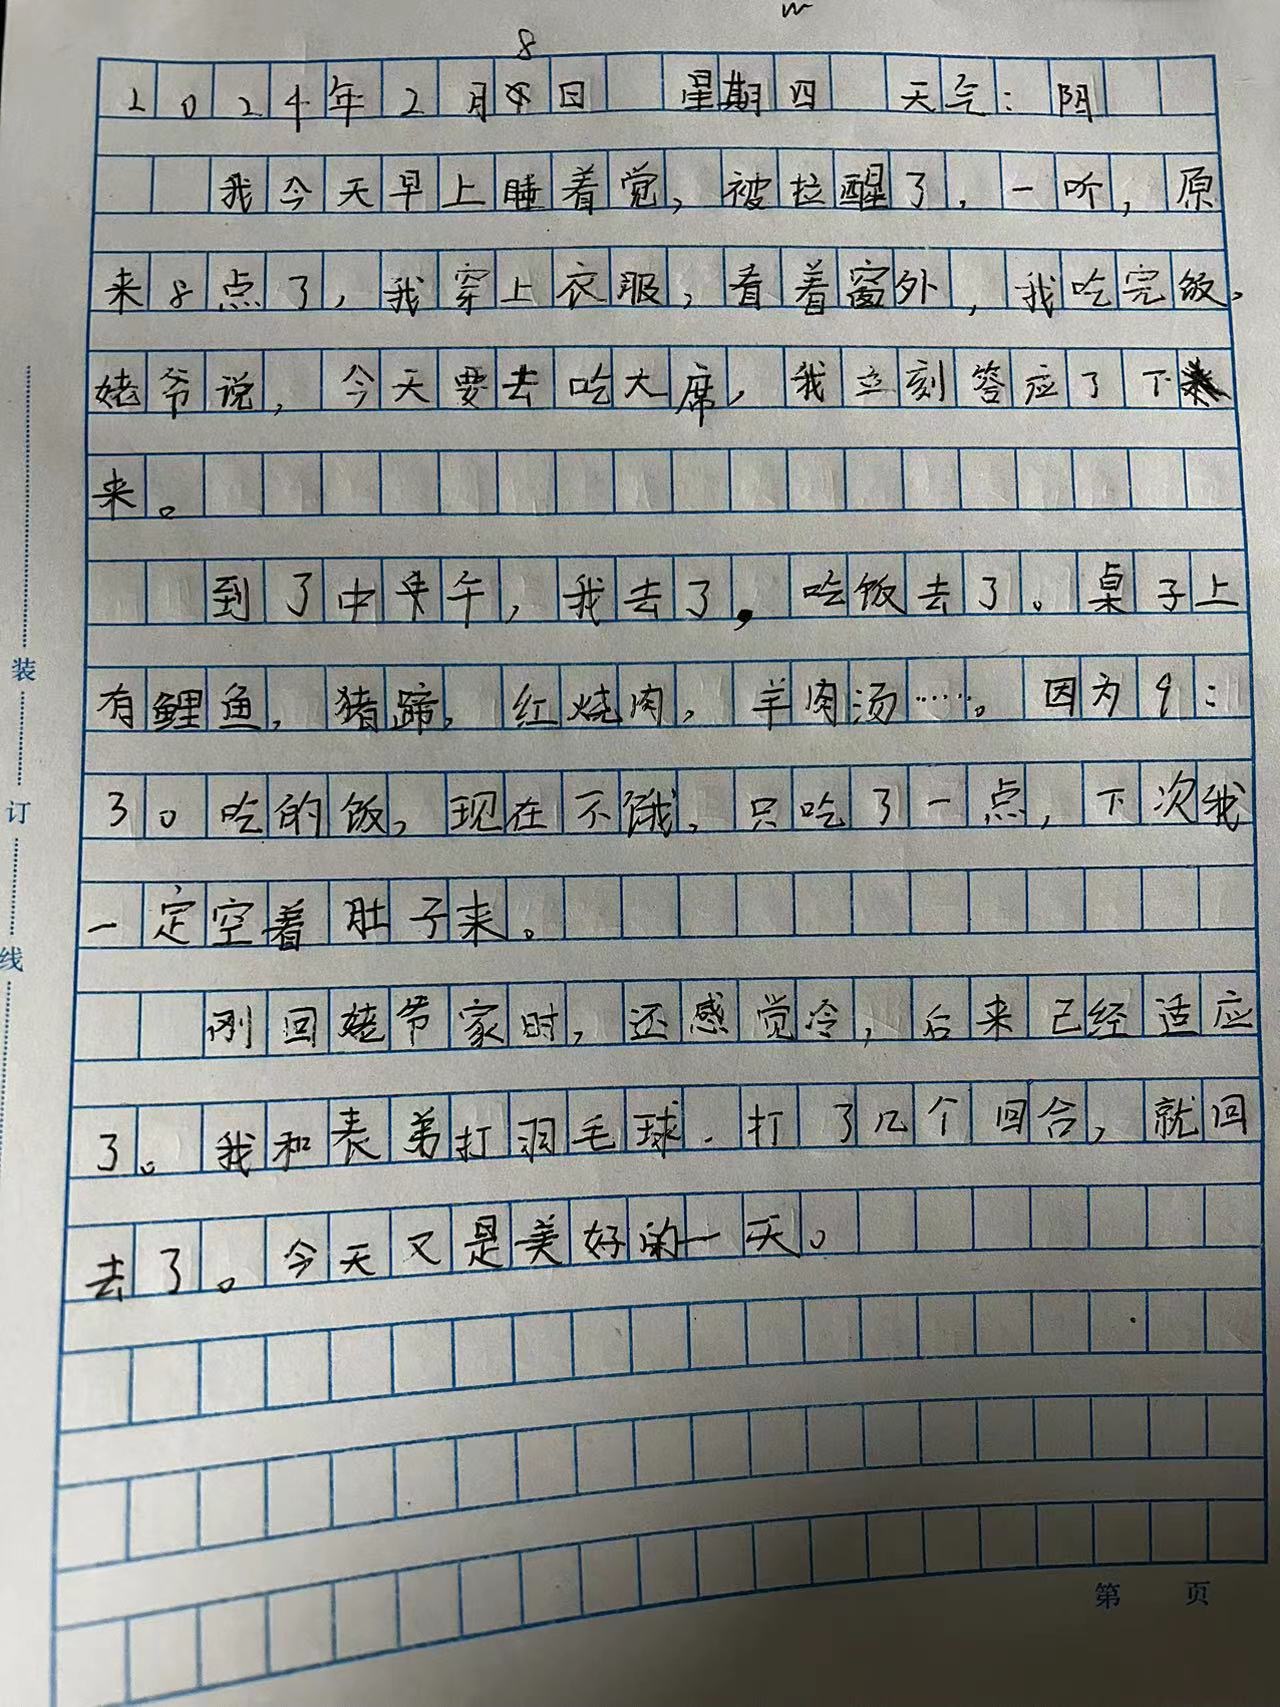 8
2024年2月日 星期四 天气：阴
我今天早上睡着觉，被拉醒了，一听，原
来8点了，我穿上衣服，看着窗外，我吃完饭，
姥爷说，今天要去吃大席，我立刻答应了下
来。
到了中午，我去了，吃饭去了。桌子上
有鲤鱼，猪蹄，红烧肉，羊肉汤……。因为9：
30吃的饭，现在不饿，只吃了一点，下次我
一定空着肚子来。
刚回姥爷家时，还感觉冷，后来已经适应
了。我和表弟打羽毛球，打了几个回合，就回
去了。今天又是美好的一天。
装
订
线
第 页